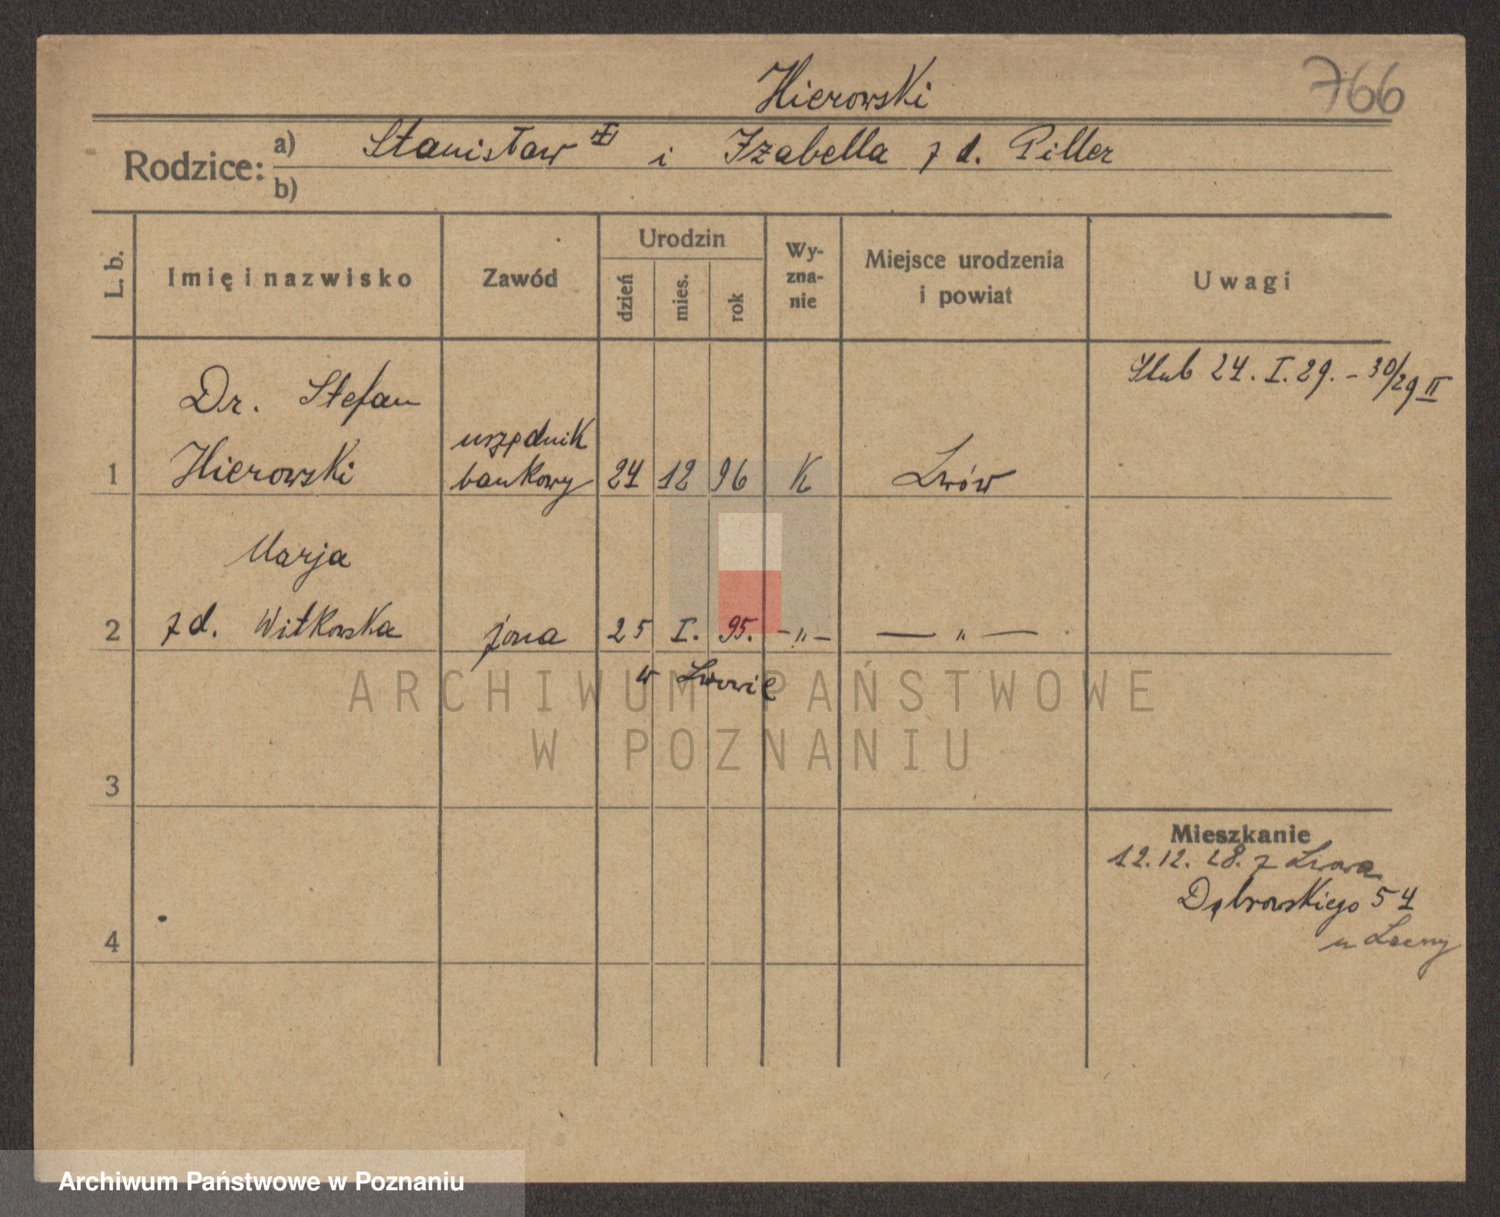 Hierowski
766
Rodzice: a) Stanisław i Izabella z d. Piller
b)
L. b.
Imię i nazwisko
Zawód
Urodzin
dzień
mies.
rok
Wy-
zna-
nie
Miejsce urodzenia
i powiat
Uwagi
Ślub 24. I. 29. – 30/29 II
Dr. Stefan
urzędnik
1 Hierowski bankowy 24 12 96 K Lwów
Marja
2 z d. Witkowska żona 25 I. 95. -"- — " —
w Lwowie
ARCHIWUM PAŃSTWOWE
W POZNANIU
3
Mieszkanie
12.12.28. z Lwowa
Dąbrowskiego 54
4
Archiwum Państwowe w Poznaniu